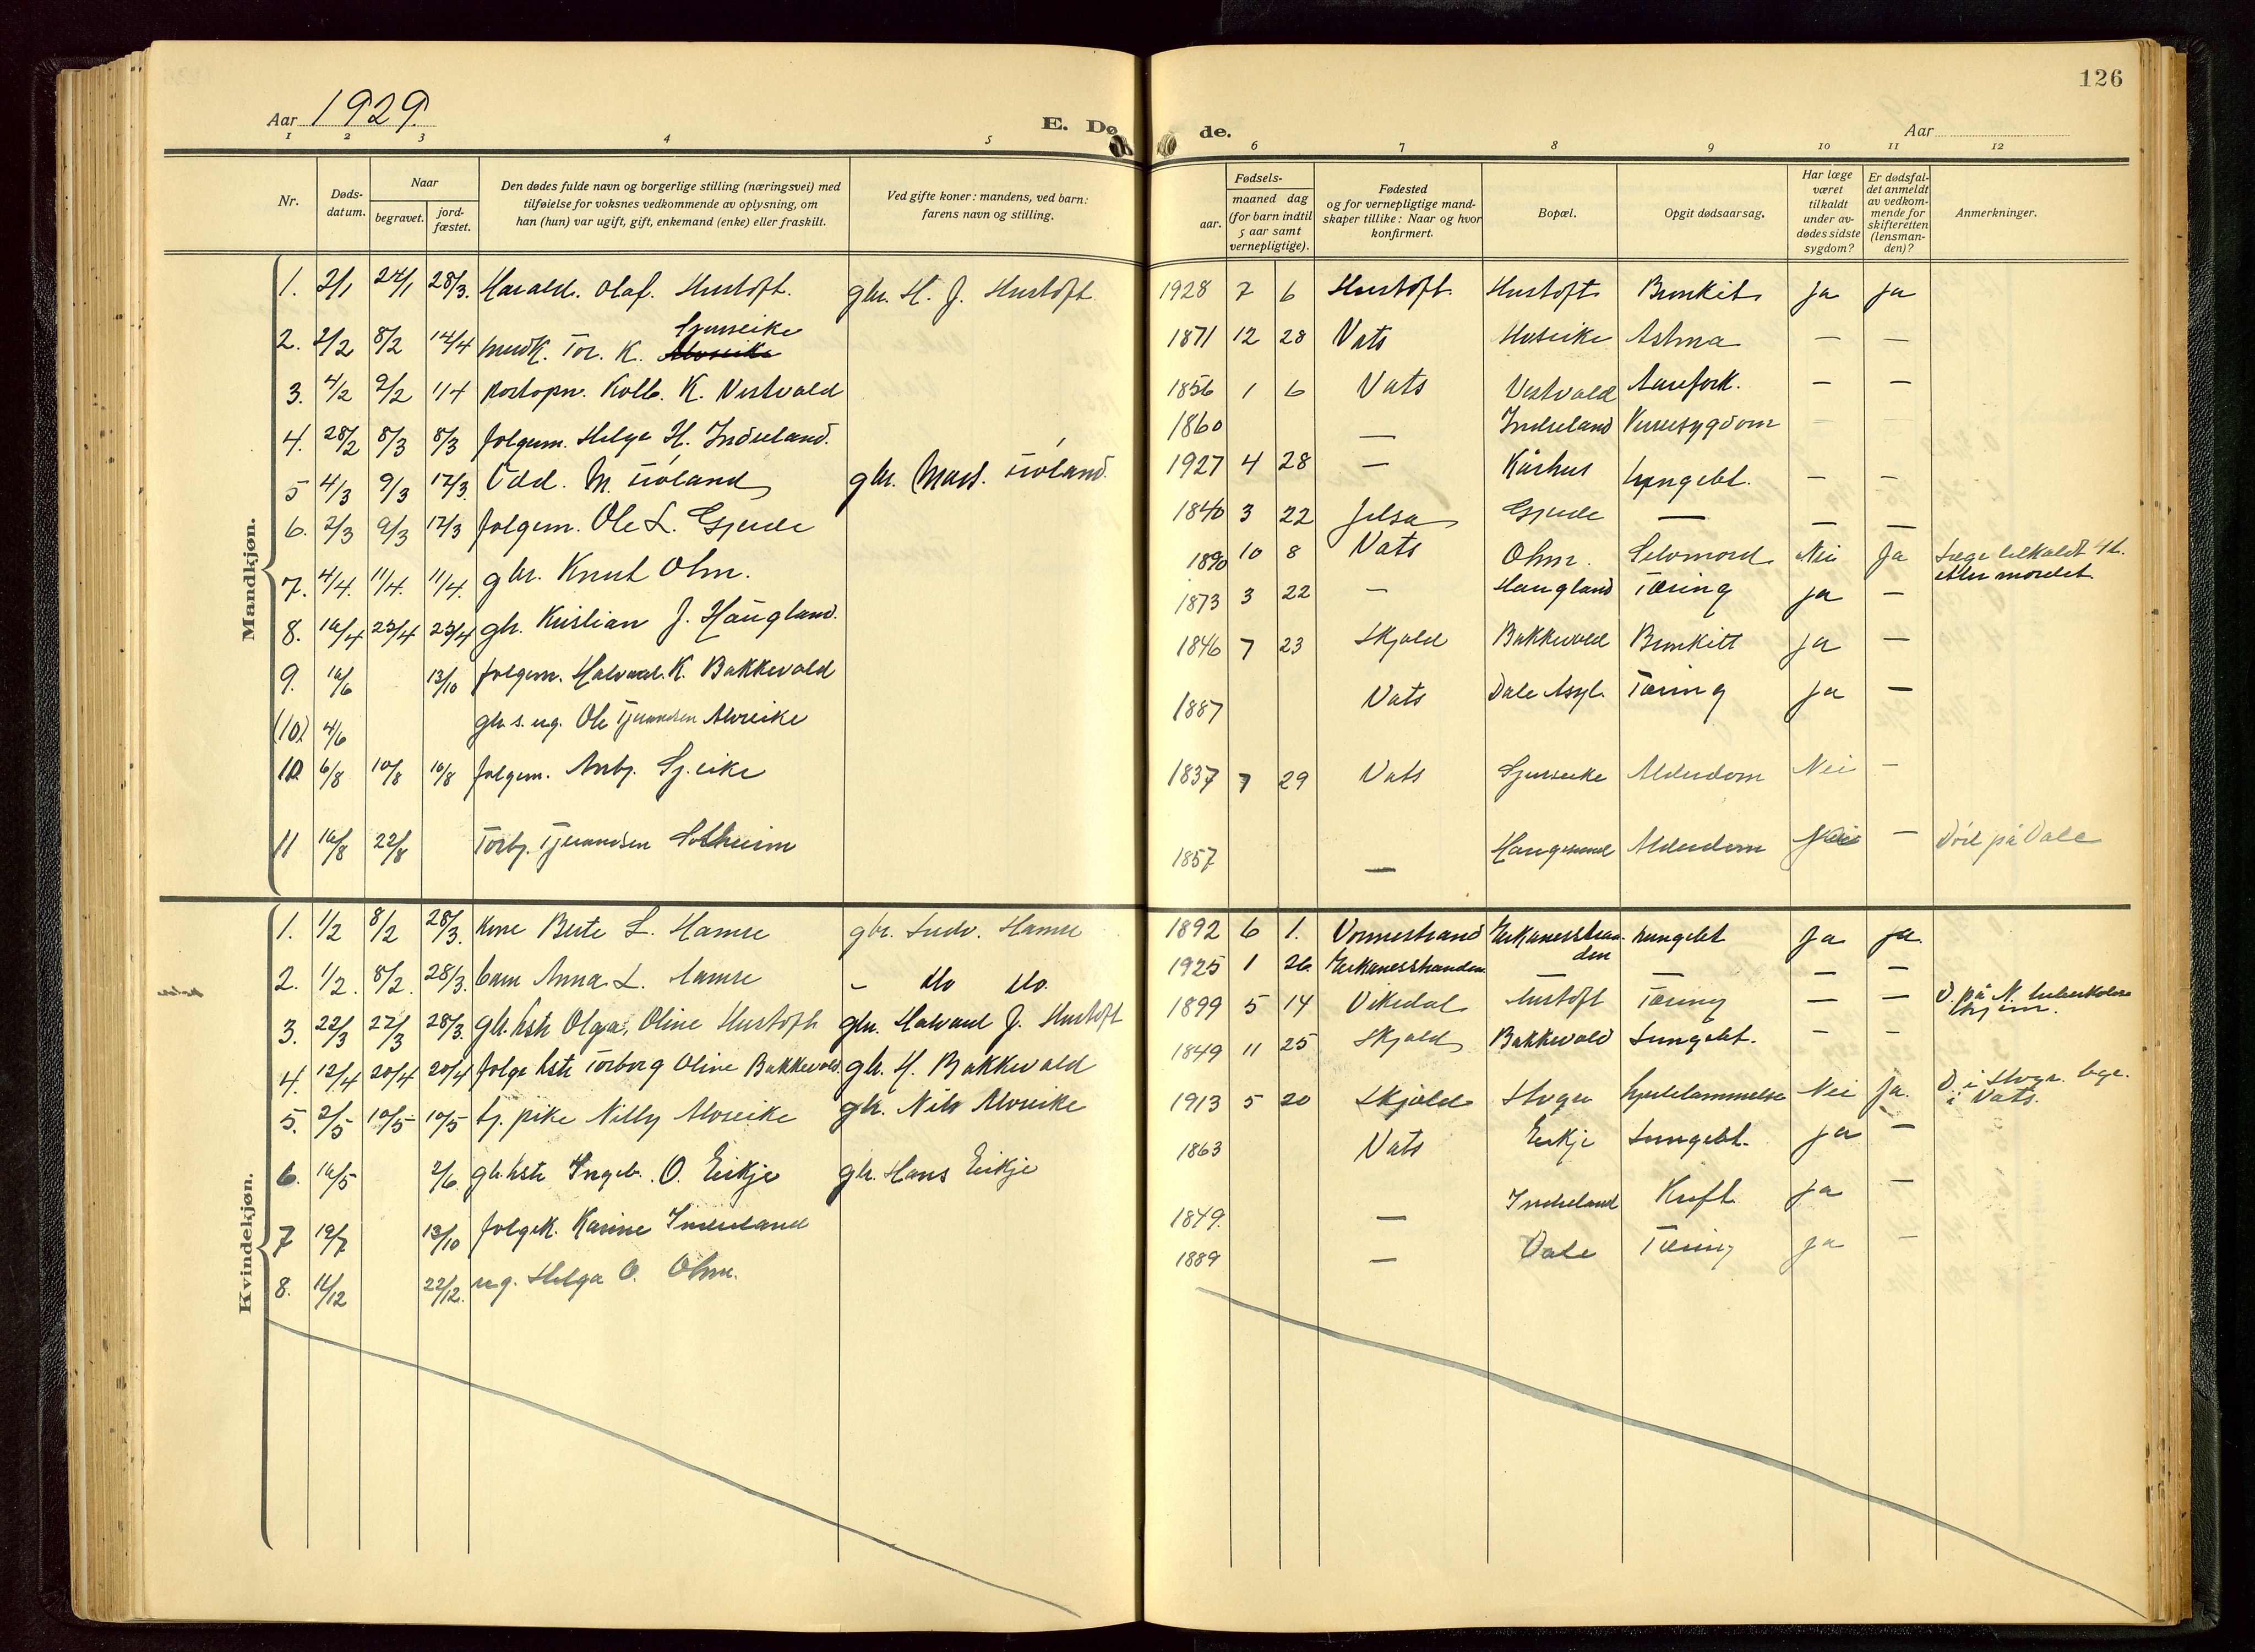 126
Aar 1929
E. Dø de.
Aar
1 2 3 4 5 6 7 8 9 10 11 12
Nr.
Døds-
datum.
Naar
begravet.
jord-
fæstet.
Den dødes fulde navn og borgerlige stilling (næringsvei) med
tilføielse for voksnes vedkommende av oplysning, om
han (hun) var ugift, gift, enkemand (enke) eller fraskilt.
Ved gifte koner: mandens, ved barn:
farens navn og stilling.
Fødsels-
aar.
maaned dag
(for barn indtil
5 aar samt
vernepligtige).
Fødested
og for vernepligtige mand-
skaper tillike: Naar og hvor
konfirmert.
Bopæl.
Opgit dødsaarsag.
Har læge
været
tilkaldt
under av-
dødes sidste
sygdom?
Er dødsfal-
det anmeldt
av vedkom-
mende for
skifteretten
(lensman-
den)?
Anmerkninger.
Mandkjøn.
1. 2/1 24/1 28/3. Harald. Olaf. Hustoft. gbr. H. J. Hustoft 1928 7 6 Hustoft. Hustoft Bronkit Ja Ja
2. 2/2 8/2 14/4 Tor. K. 1871 12 28 Vats Astma — —
3. 4/2 9/2 1/4 postopn. Kolb. K. Vestvold 1856 1 6 Vats Vestvold Aarefork. — —
4. 28/2 8/3 8/3 folgem. Helge H. Indreland. 1860 — Indreland
5 4/3 9/3 17/3. Odd. M. gbr. 1927 4 28 — Kårhus Lungebt. — —
6. 2/3 9/3 17/3 folgem. Ole L. Gjerde 1840 3 22 Jelsa Gjerde — — —
7. 4/4. 11/4. 11/4. gbr. Knut Ohm. 1890 10 8 Vats Ohm. Selvmord Nei Ja Læge tilkaldt 4 t.
etter mordet.
8. 16/4 23/4 23/4 gbr. Kristian J. Haugland. 1873 3 22 — Haugland Tæring Ja —
9. 16/6 13/10 folgem. K. Bakkevold 1846 7 23 Skjold Bakkevold Bronkitt Ja —
(10.) 4/6 gbr. s. ug. Ole Tjerandsen Alvseike 1887 Vats Dale Asyl. Tæring Ja —
10. 6/8 10/8 10/8 folgem. Anbj. Sj.eike 1837 7 29 Vats Alderdom Nei —
11 16/8 22/8 Torbj. Tjerandsen Solheim 1857 — Haugesund Alderdom Nei — Död på Dale
Kvindekjøn.
1. 1/2 8/2 28/3. kone Berte L. Hamre gbr. Ludv. Hamre 1892 6 1. Lungebt Ja Ja
2. 1/2. 8/2. 28/3. barn Anna L. Hamre – do do. 1925 1 26. — — — —
3. 22/3 27/3 28/3. gbr. kste Olga, Oline Hustoft gbr. Halvard J. Hustoft 1899 5 14 Vikedal Hustoft Tæring — — D. på N. tuberkulose
hjem.
4. 12/4 20/4 20/4 folge kste Torborg Oline Bakkevold. gbr. H. Bakkevold 1849 11 25 Skjold Bakkevold Lungebt. — —
5. 2/5 10/5 10/5 tj. pike Nilly Alvseike gbr. Nils Alvseike 1913 5 20 Skjold Hjertelammelse Nei Ja.
i Vats.
6. 16/5 2/6. gbr. kste Ingeb. O. Eikje gbr. Hans Eikje 1863 Vats Eikje Lungebt. Ja —
7 19/7 13/10 folgek. Karine Indreland 1849. — Indreland Kreft Ja —
8. 11/12 22/12. ug. Helga O. Ohm. 1889 — Dale Tæring Ja —